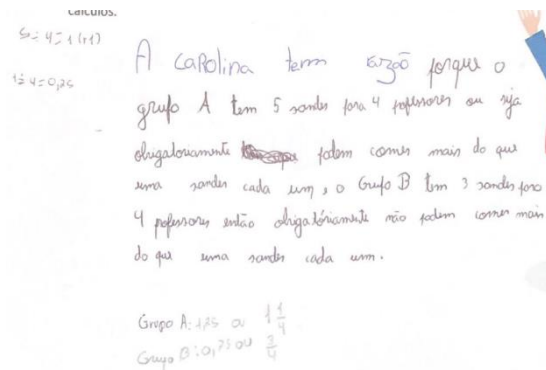 cálculos.
5÷4=1(r1)
1÷4=0,25
A CAROlina tem razão porque o
grupo A tem 5 sandes para 4 professores ou seja
obrigatoriamente podem comer mais do que
uma sandes cada um, o Grupo B tem 3 sandes para
4 professores então obrigatóriamente não podem comer mais
do que uma sandes cada um.
Grupo A: 1,25 ou 1 1/4
Grupo B: 0,75 ou 3/4